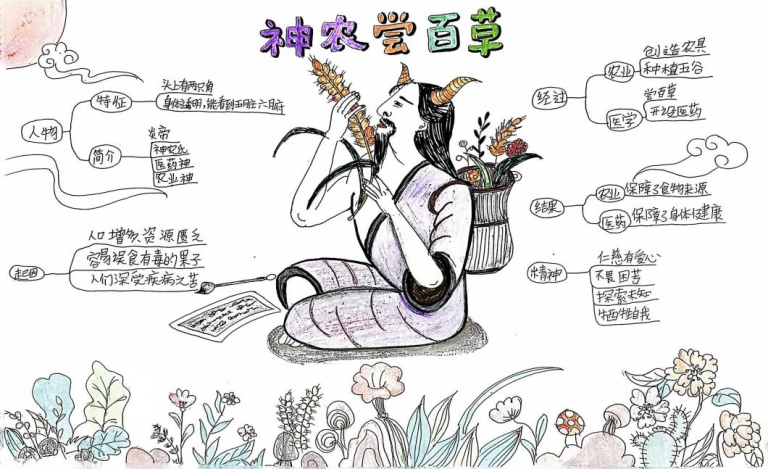 神农尝百草
人物
特征
头上有两只角
身体透明,能看到五脏六腑
简介
炎帝
神农氏
医药神
农业神
起因
人口增多,资源匮乏
容易误食有毒的果子
人们深受疾病之苦
经过
农业
创造农具
种植五谷
医学
尝百草
开创医药
结果
农业
保障了食物来源
医药
保障了身体健康
精神
仁慈有爱心
不畏困苦
探索未知
牺牲自我